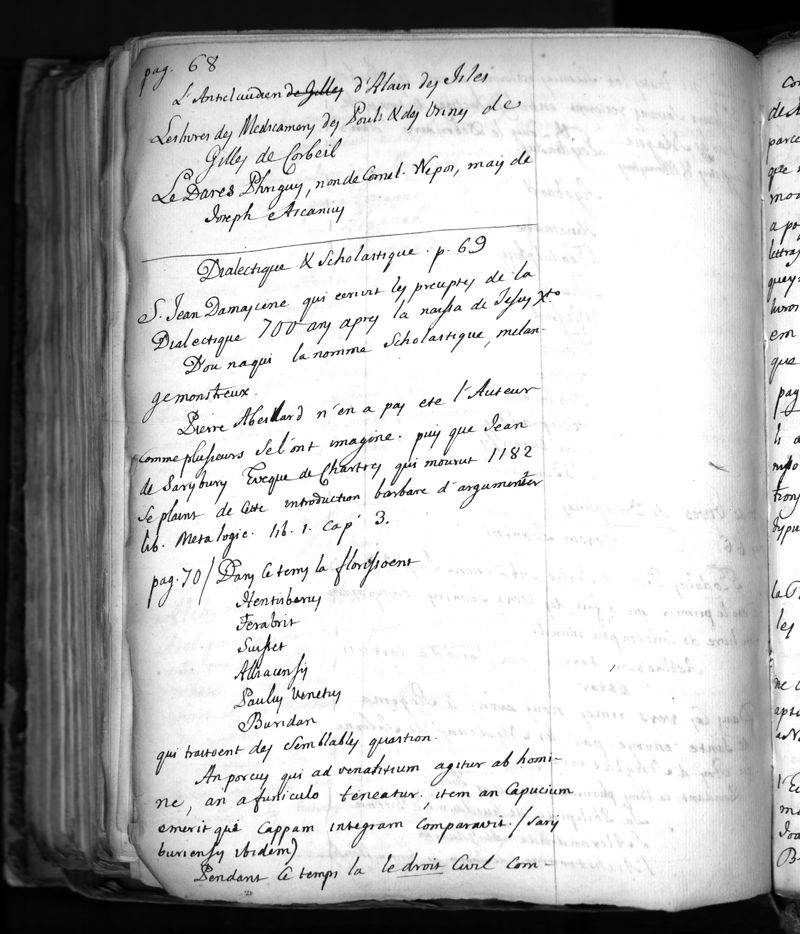 pag. 68
L'Anticlaudien de Gilles d'Alain des Isles
Les livres des Medicamens des Pouls & des Urines de
Gilles de Corbeil
Le Dares Phrigius, non de Cornel. Nepos, mais de
Joseph Ascanius
Dialectique & Scholastique. p. 69
S. Jean Damascene qui ecrivit les preuptes de la
Dialectique 700 ans apres la naissa de Jesus Xto
D'ou naqui la nomme Scholastique, melan-
ge monstreux.
Pierre Abeillard n'en a pas ete l'Auteur
comme plusieurs se l'ont imagine. puis que Jean
de Sarysbury Eveque de Chartres qui mourut 1182
se plaint de cette introduction barbare d'argumenter
lib. Metalogic. lib. 1. cap. 3.
pag. 70 / Dans ce tems la florissoent
Hentisberus
Ferabrit
Suisset
Alliacensis
Paulus Venetus
Buridan
qui traitoent des semblables question.
An porcus qui ad venalitium agitur ab homi-
ne, an a funiculo teneatur; item an Capucium
emerit qui cappam integram comparavit. (Saris
buriensis ibidem)
Pendant ce temps la le droit Civil com-